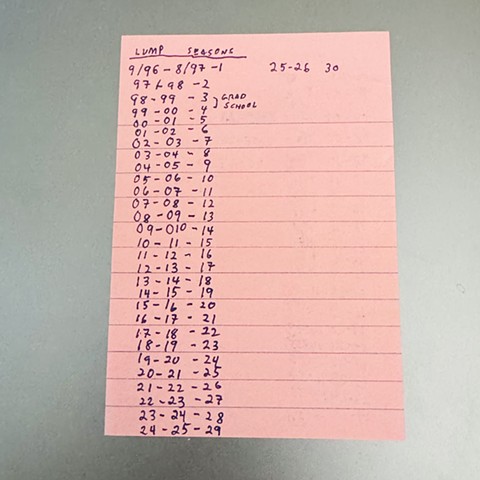 LUMP SEASONS
9/96 - 8/97 - 1 25-26 30
97-98 - 2
98-99 - 3 } GRAD
99-00 - 4 SCHOOL
00-01 - 5
01-02 - 6
02-03 - 7
03-04 - 8
04-05 - 9
05-06 - 10
06-07 - 11
07-08 - 12
08-09 - 13
09-010 - 14
10-11 - 15
11-12 - 16
12-13 - 17
13-14 - 18
14-15 - 19
15-16 - 20
16-17 - 21
17-18 - 22
18-19 - 23
19-20 - 24
20-21 - 25
21-22 - 26
22-23 - 27
23-24 - 28
24-25 - 29